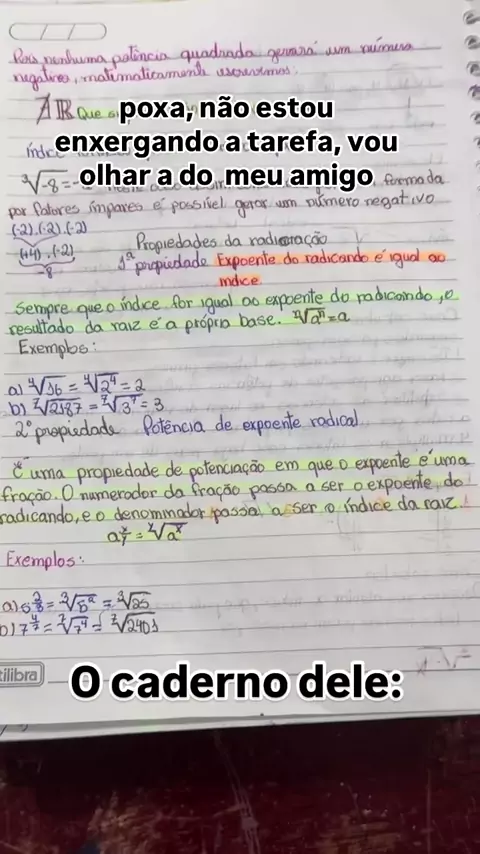 Pois nenhuma potência quadrada gerará um número
negativo, matematicamente escrevemos.
∄ ℝ Que
poxa, não estou
enxergando a tarefa, vou
olhar a do meu amigo
índice
³√-8 = - formada
por fatores ímpares é possível gerar um número negativo
(-2).(-2).(-2)
(+4).(-2)
-8
Propiedades da radiciação
1ª propiedade Expoente do radicando é igual ao
índice
Sempre que o índice for igual ao expoente do radicando, o
resultado da raiz é a própria base. ⁿ√aⁿ = a
Exemplos:
a) ⁴√16 = ⁴√2⁴ = 2
b) ⁷√2187 = ⁷√3⁷ = 3
2º propiedade Potência de expoente radical
É uma propiedade de potenciação em que o expoente é uma
fração. O numerador da fração passa a ser o expoente do
radicando, e o denominador passa a ser o índice da raiz.
Exemplos:
a) 5^⅔ = ³√5² = ³√25
b) 7^4/7 = ⁷√7⁴ = ⁷√2401
tilibra
O caderno dele: